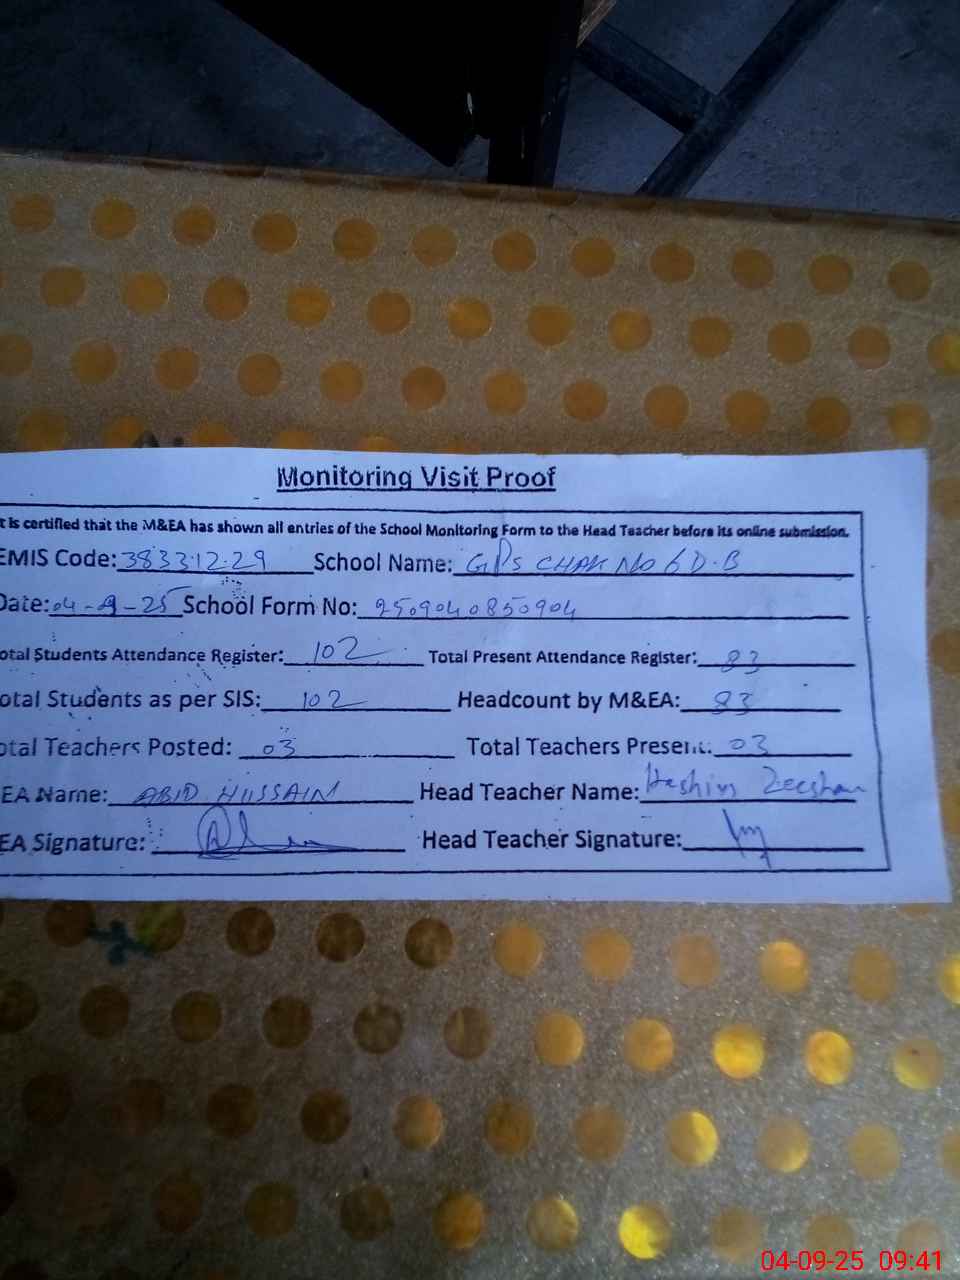 Monitoring Visit Proof
t is certified that the M&EA has shown all entries of the School Monitoring Form to the Head Teacher before its online submission.
EMIS Code: 38331229 School Name: GPS CHAK NO 6 D.B
Date: 04-9-25 School Form No: 250904085 0904
otal Students Attendance Register: 102 Total Present Attendance Register: 83
otal Students as per SIS: 102 Headcount by M&EA: 83
otal Teachers Posted: 03 Total Teachers Present: 03
EA Name: ABID HUSSAIN Head Teacher Name: Hashim Zeeshan
EA Signature: Head Teacher Signature:
04-09-25 09:41